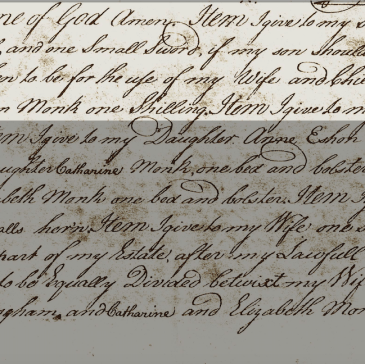 me of God Amen. Item I give to my s
, and one Small Sword, if my son Shoul
en to be for the use of my Wife and Chi
n Monk one Shilling. Item I give to m
em I give to my Daughter Anne Eshon
ughter Catharine Monk, one bed and bolster
abeth Monk one bed and bolster. Item I
alls horn. Item I give to my Wife, one s
part of my Estate, after my Lawfull
to be Equally Divided betwixt my Wif
ngham, and Catharine and Elizabeth Mon